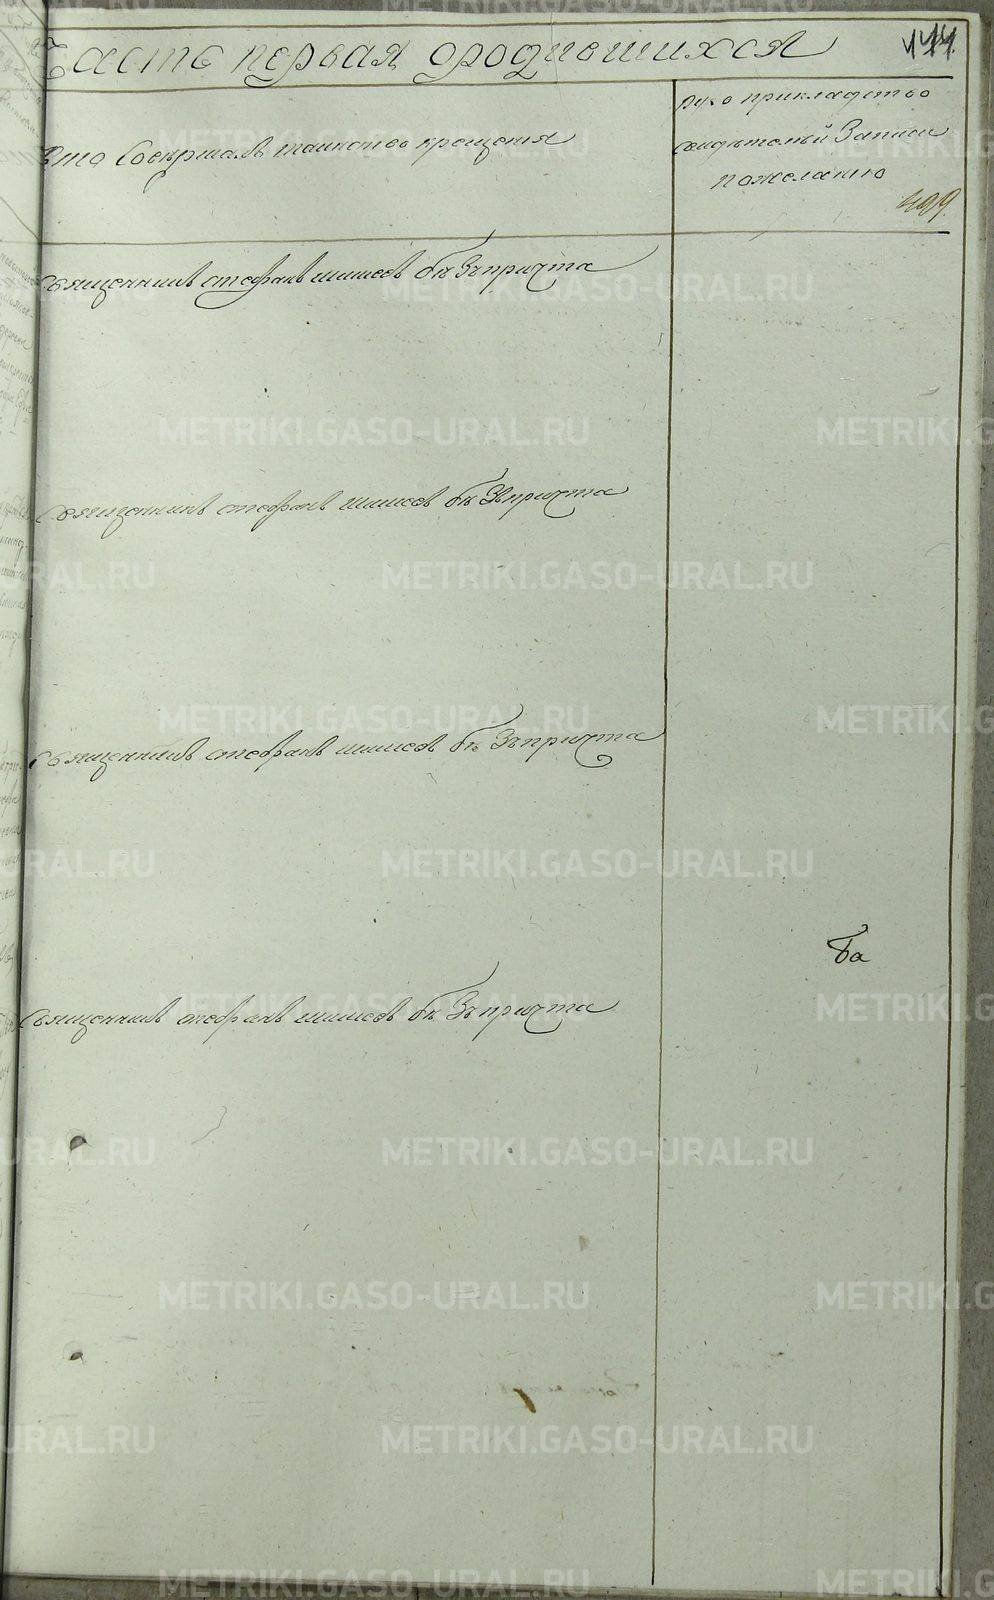 Часть первая ородившихся
144
Кто Совершалъ таинство крещения
руко прикладство
свидетелей Записи
пожеланию
499.
Священникъ стефанъ шишов безъпричта
Священникъ стефанъ шишов безъпричта
Священникъ стефанъ шишов безъпричта
ба
Священникъ стефанъ шишов безъпричта
METRIKI.GASO-URAL.RU